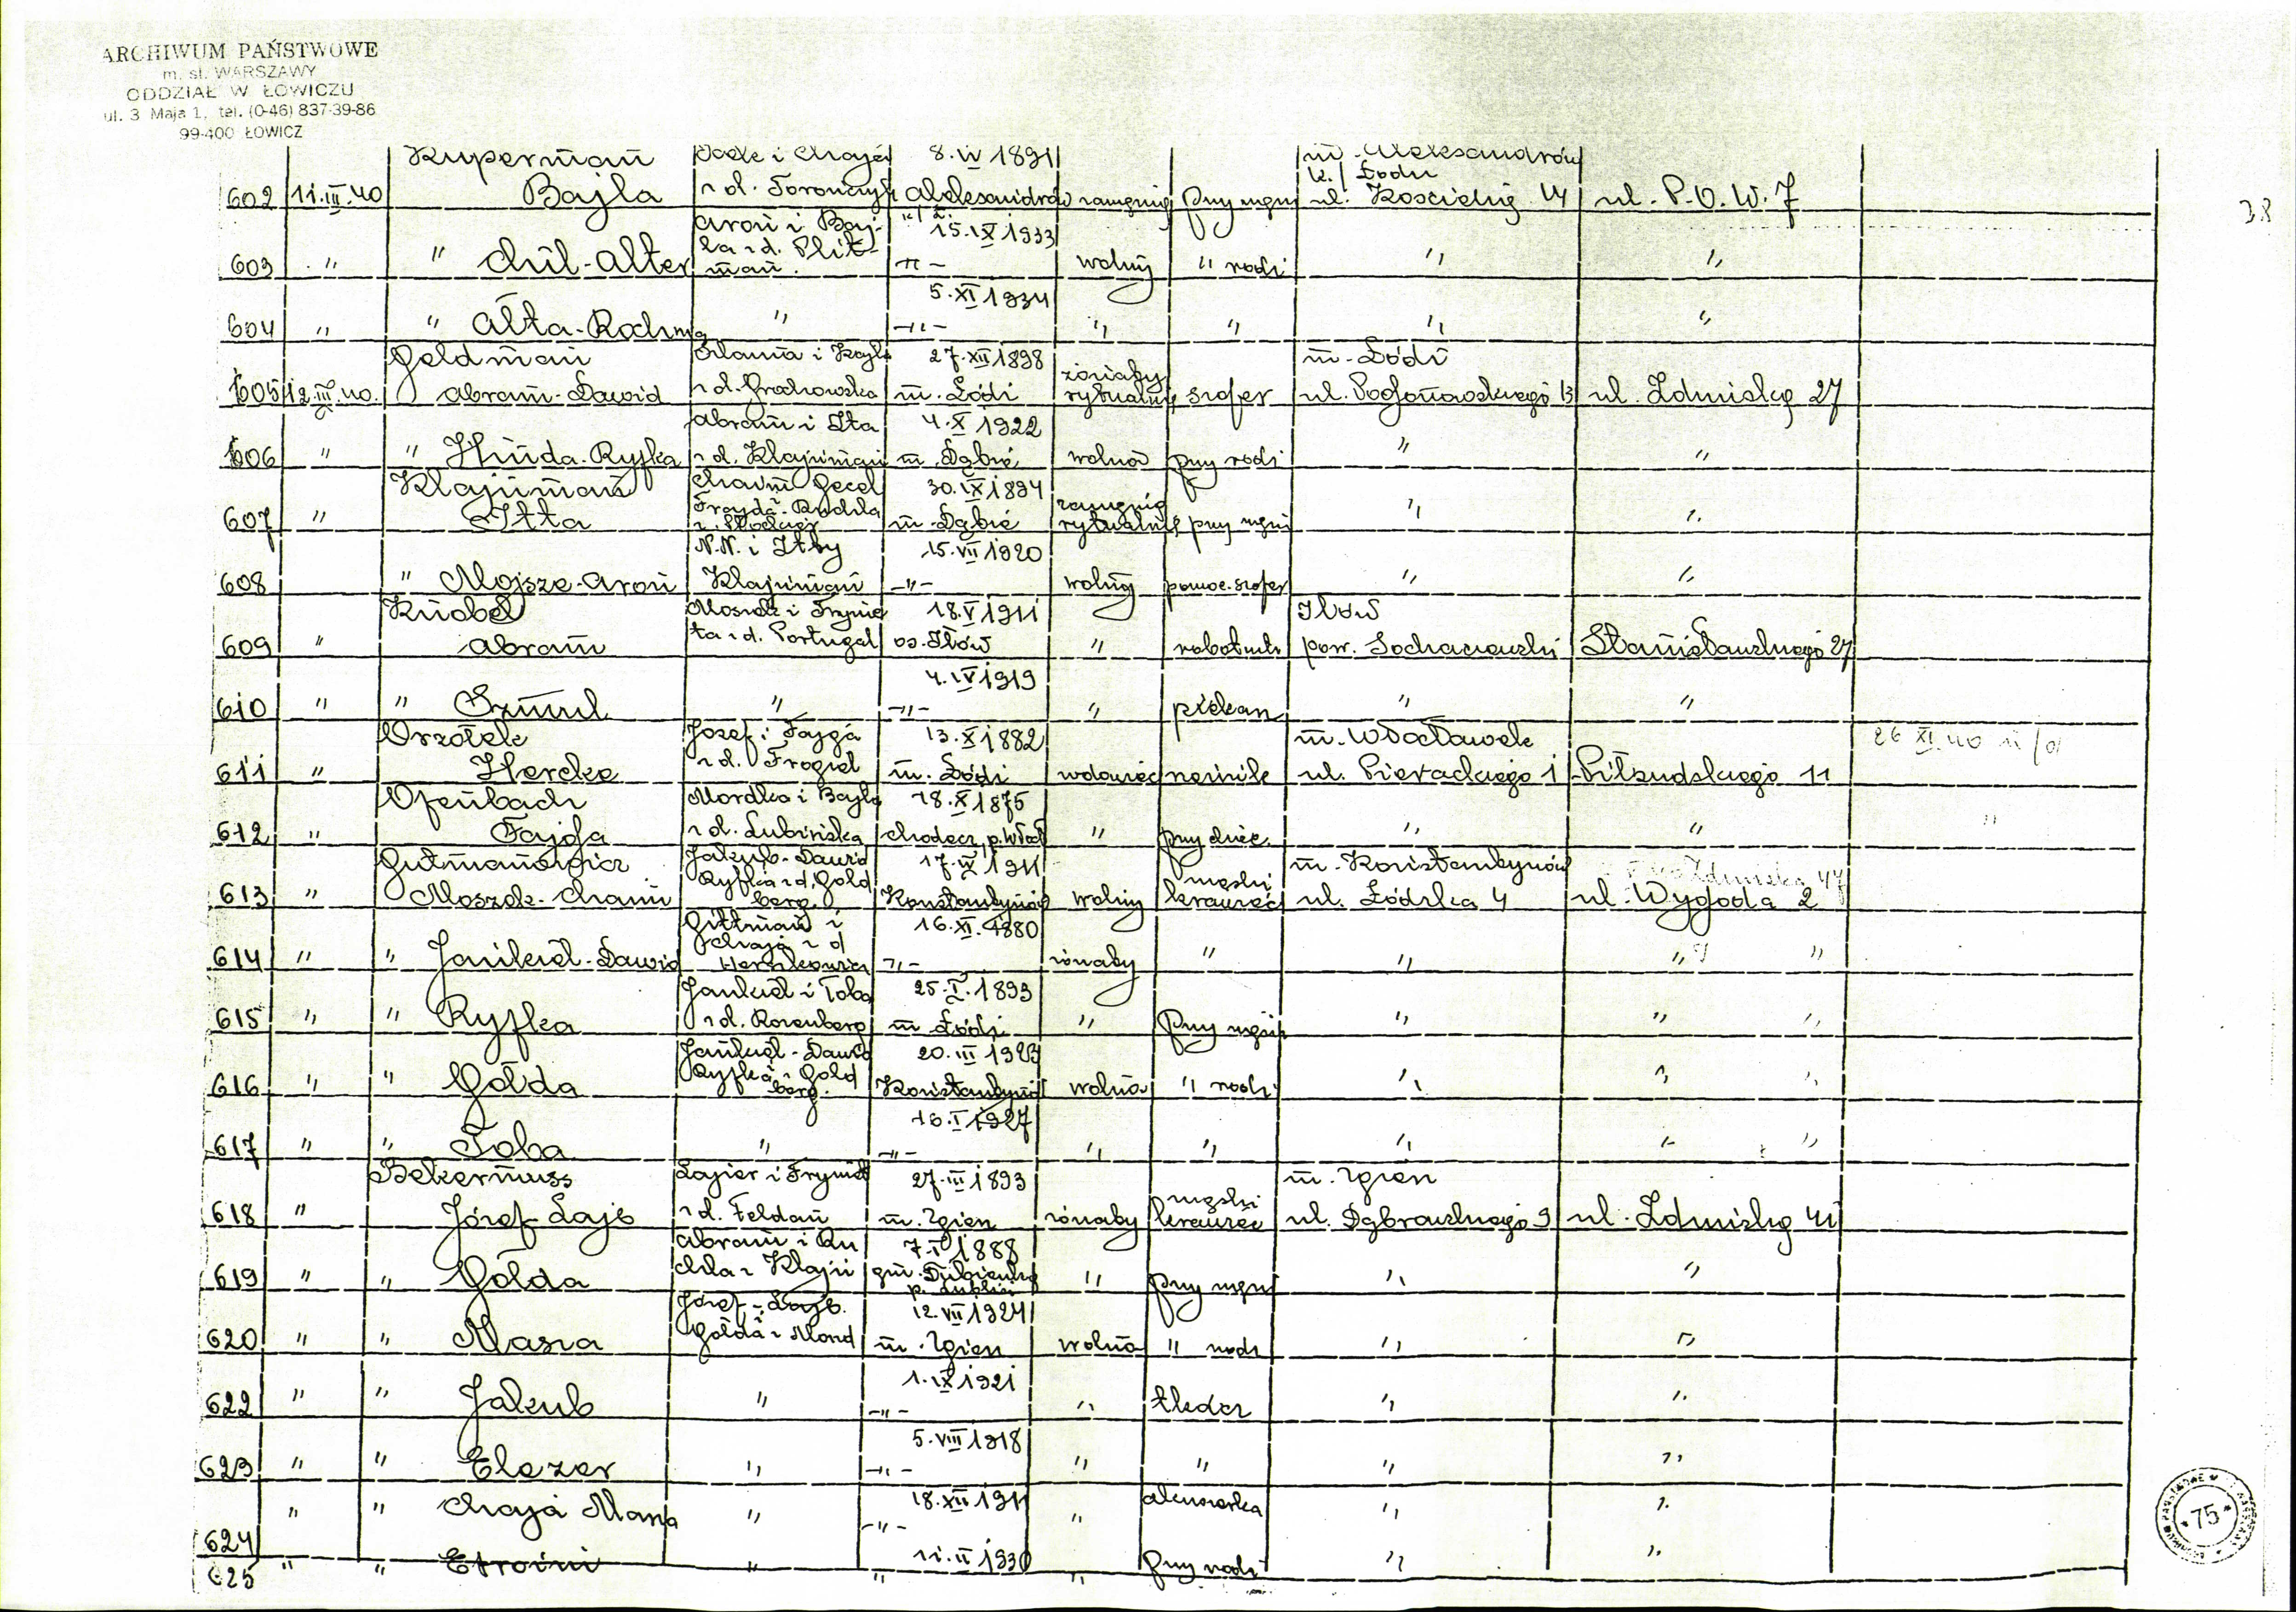 ARCHIWUM PAŃSTWOWE
m. st. WARSZAWY
ODDZIAŁ W ŁOWICZU
ul. 3 Maja 1, tel. (0-46) 837-39-86
99-400 ŁOWICZ
38
Kuperman i Chaja 8.IV 1891 m. Aleksandrów
k./ Łodzi
602 11.III.40 Bajla z d. Aleksandrów zamężna przy mężu ul. Kościelna 14 ul. P.O.W. 7
Aron i Baj- k/Ł. 15.IX 1933
603 " " Chil-Alter la z d. Plit-man -"- wolny " rodz " "
5.XI 1934
604 " " Alta-Rochma " -"- " " " "
Geldman 27.XII 1898 m. Łódź
605 12.III.40. Abram-Dawid z d. Grochowska m. Łódź żonaty rytualnie szofer ul. Pogonowskiego 13 ul. Zduńska 27
Abram i Ita 4.X 1922
606 " " Hinda-Ryfka z d. Klajnman m. Dąbie wolna przy rodz " "
Klajnman Chaim Gecel 30.IX 1894
607 " Itta Frajda-Ruchla m. Dąbie zamężna rytualnie przy mężu " "
N.N. i Itty 15.VII 1920
608 " Mojsze-Aron Klajnman -"- wolny pomoc. szofer " "
Knobel Moszek i Frymet 18.V 1911 Iłów
609 " Abram ta z d. Portugal os. Iłów " robotnik pow. Sochaczewski Stanisławskiego 27
4.IV 1919
610 " " Szmul " -"- " piekarz " "
Orzołek Józef i Fajga 13.X 1882 m. Włocławek 26 XI 40
611 " Hercke z d. Frogiel m. Łódź wdowiec ul. Pierackiego 1 Piłsudskiego 11
Ofenbach Mordka i Bajla 18.X 1875
612 " Fajga z d. Lubińska Chodecz, p. Włocł " przy dziec. " " "
Gutmanowicz Jakub-Dawid 17.IV 1911 m. Konstantynów
Ryfka z d. Gold męski Zduńska 47
613 " Moszek-Chaim berg. Konstantynów wolny krawiec ul. Łódzka 4 ul. Wygoda 2
Gittman i 16.XI.1880
Chaja z d
614 " " Jankiel-Dawid Herszkowicz -"- żonaty " " " "
Jankiel i Toba 25.I.1893
615 " " Ryfka z d. Rozenberg m. Łódź " przy mężu " " "
Jankiel-Dawid 20.III 1923
Ryfka z Gold
616 " " Gołda berg. Konstantynów wolna " rodz " " "
10.I 1927
617 " " Toba " -"- " " " " "
Bekermuss Łajzer i Frymet 27.III 1893 m. Zgierz
męski
618 " Józef-Lajb z d. Feldan m. Zgierz żonaty krawiec ul. Dąbrowskiego 9 ul. Zduńska 41
Abram i Ru 7.I 1888
619 " " Gołda chla z Klajn gm. p. Lublin " przy mężu " "
Józef-Lajb. 12.VII 1924
620 " " Masza Gołda z m. Zgierz wolna " rodz " "
1.IX 1921
622 " " Jakub " -"- " tkacz " "
5.VIII 1918
623 " " Elezer " -"- " " " "
18.XII 1911
624 " " Chaja " -"- " akuszerka " "
11.II 1930
625 " " " " " przy rodz " "
75